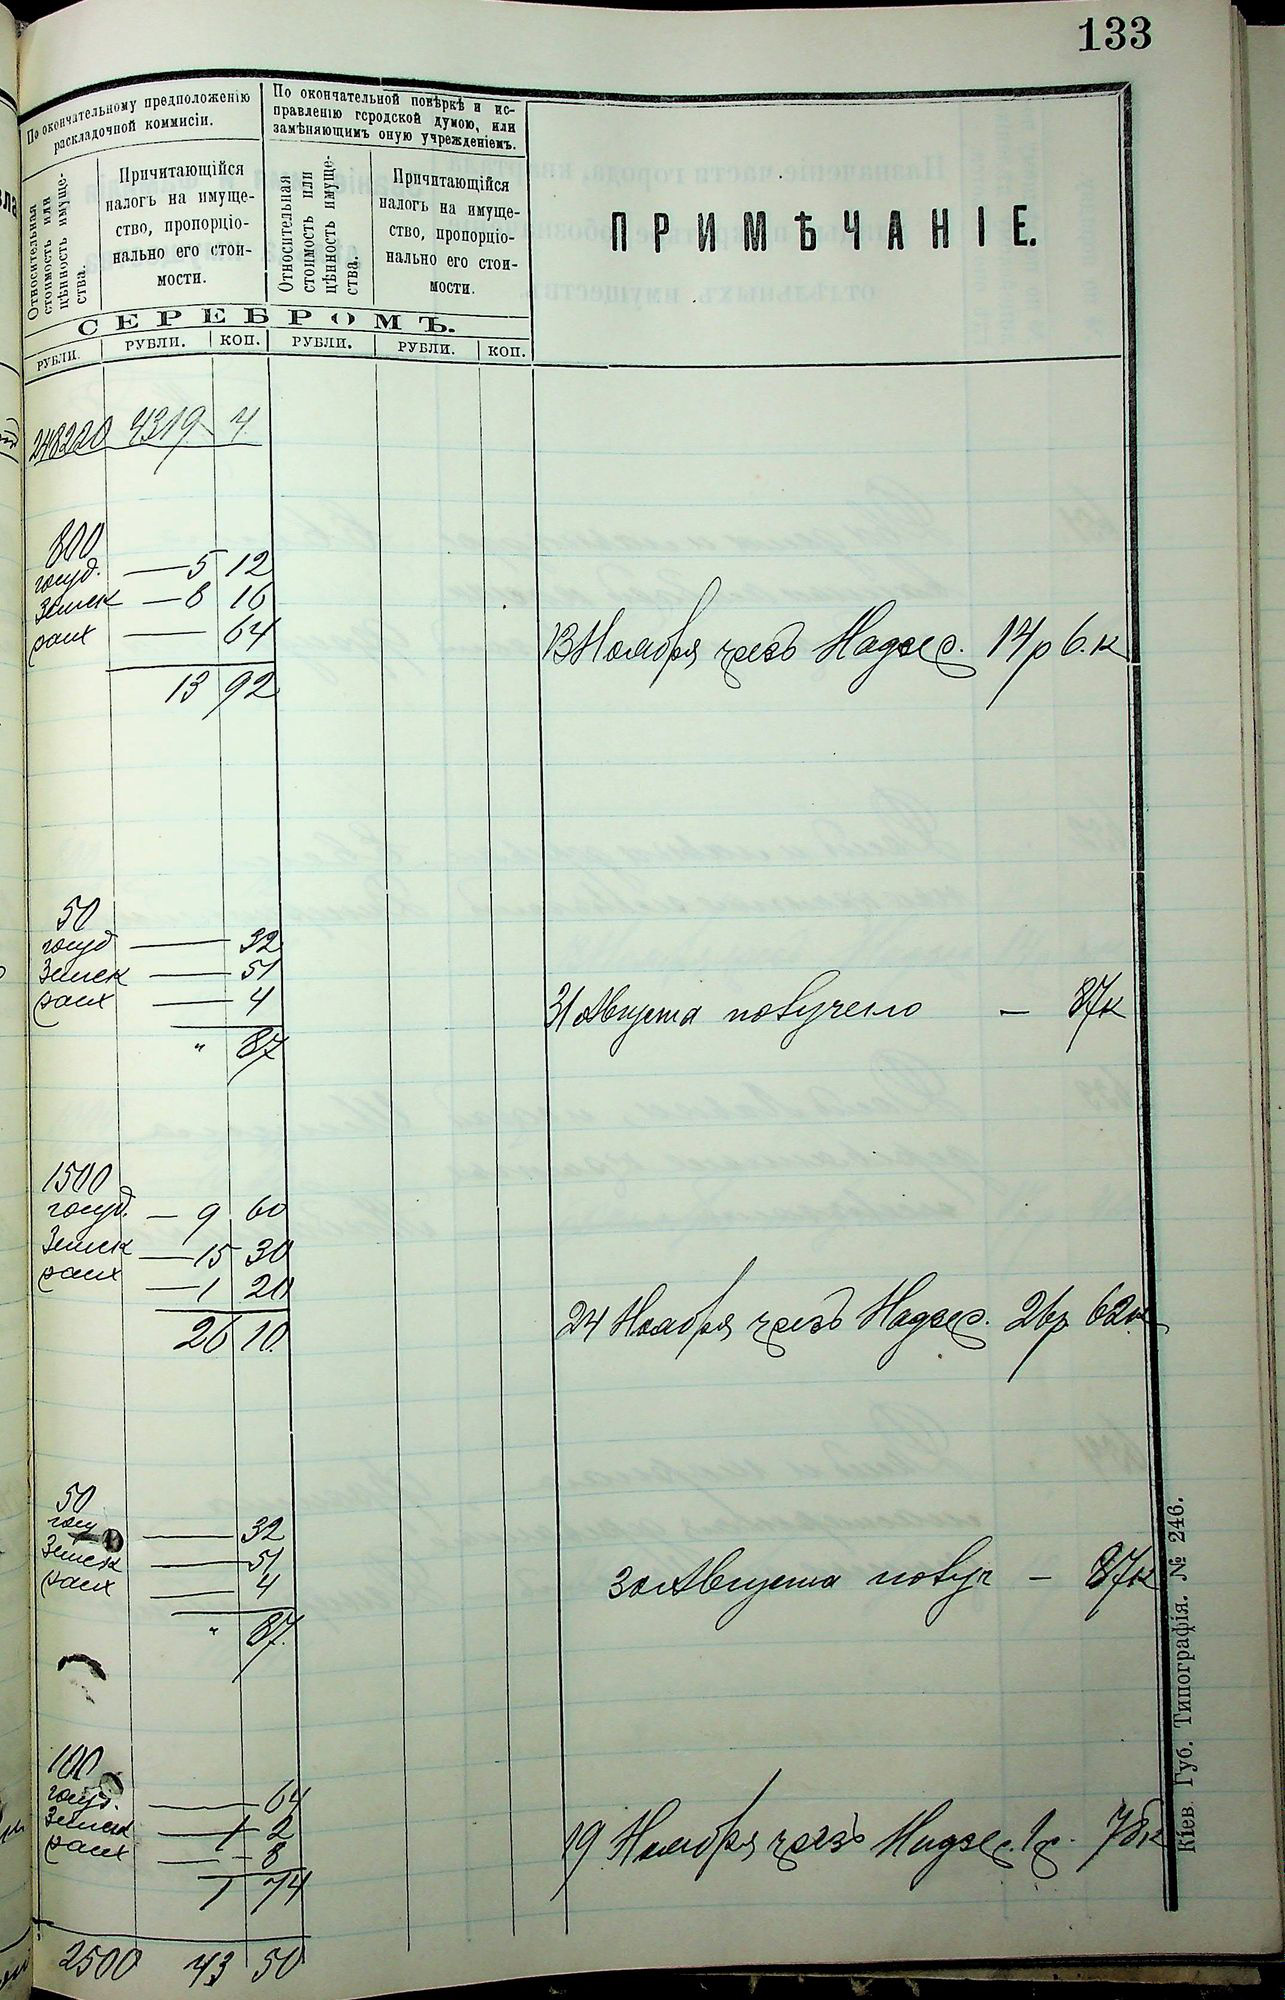 133
По окончательному предположенію
раскладочной коммисіи.
По окончательной повѣркѣ и ис-
правленію городской думою, или
замѣняющимъ оную учрежденіемъ.
Относительная
стоимость или
цѣнность имуще-
ства.
Причитающійся
налогъ на имуще-
ство, пропорціо-
нально его стои-
мости.
Относительная
стоимость или
цѣнность имуще-
ства.
Причитающійся
налогъ на имуще-
ство, пропорціо-
нально его стои-
мости.
ПРИМѢЧАНІЕ.
СЕРЕБРОМЪ.
РУБЛИ. РУБЛИ. КОП. РУБЛИ. РУБЛИ. КОП.
248220 4319 4
800
госуд. — 5 12
Земск — 8 16
64
13 Ноября чрезъ Надзс. 14р 6.к
13 92
50
госуд — 32
Земск — 51
— 4
31 Августа получено — 87к
" 87
1500
госуд. — 9 60
Земск — 15 30
— 1 20
24 Ноября чрезъ Надзс. 26р 62к
26 10
50
госу — 32
Земск — 51
— 4
30 Августа получ — 87к
" 87.
100
госуд. — 64
Земск — 1 2
— 8
19 Ноября чрезъ Надзс. 1р. 78к
1 74
2500 43 50
Кіев. Губ. Типографія. № 246.